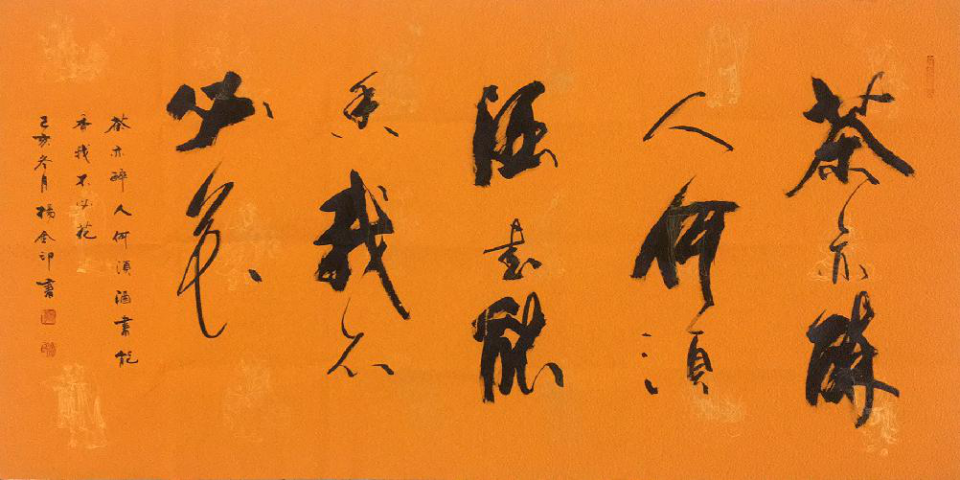 茶亦醉
人何須
酒書能
香我不
必花
茶亦醉人何須酒書能
香我不必花
己亥冬月楊金印書